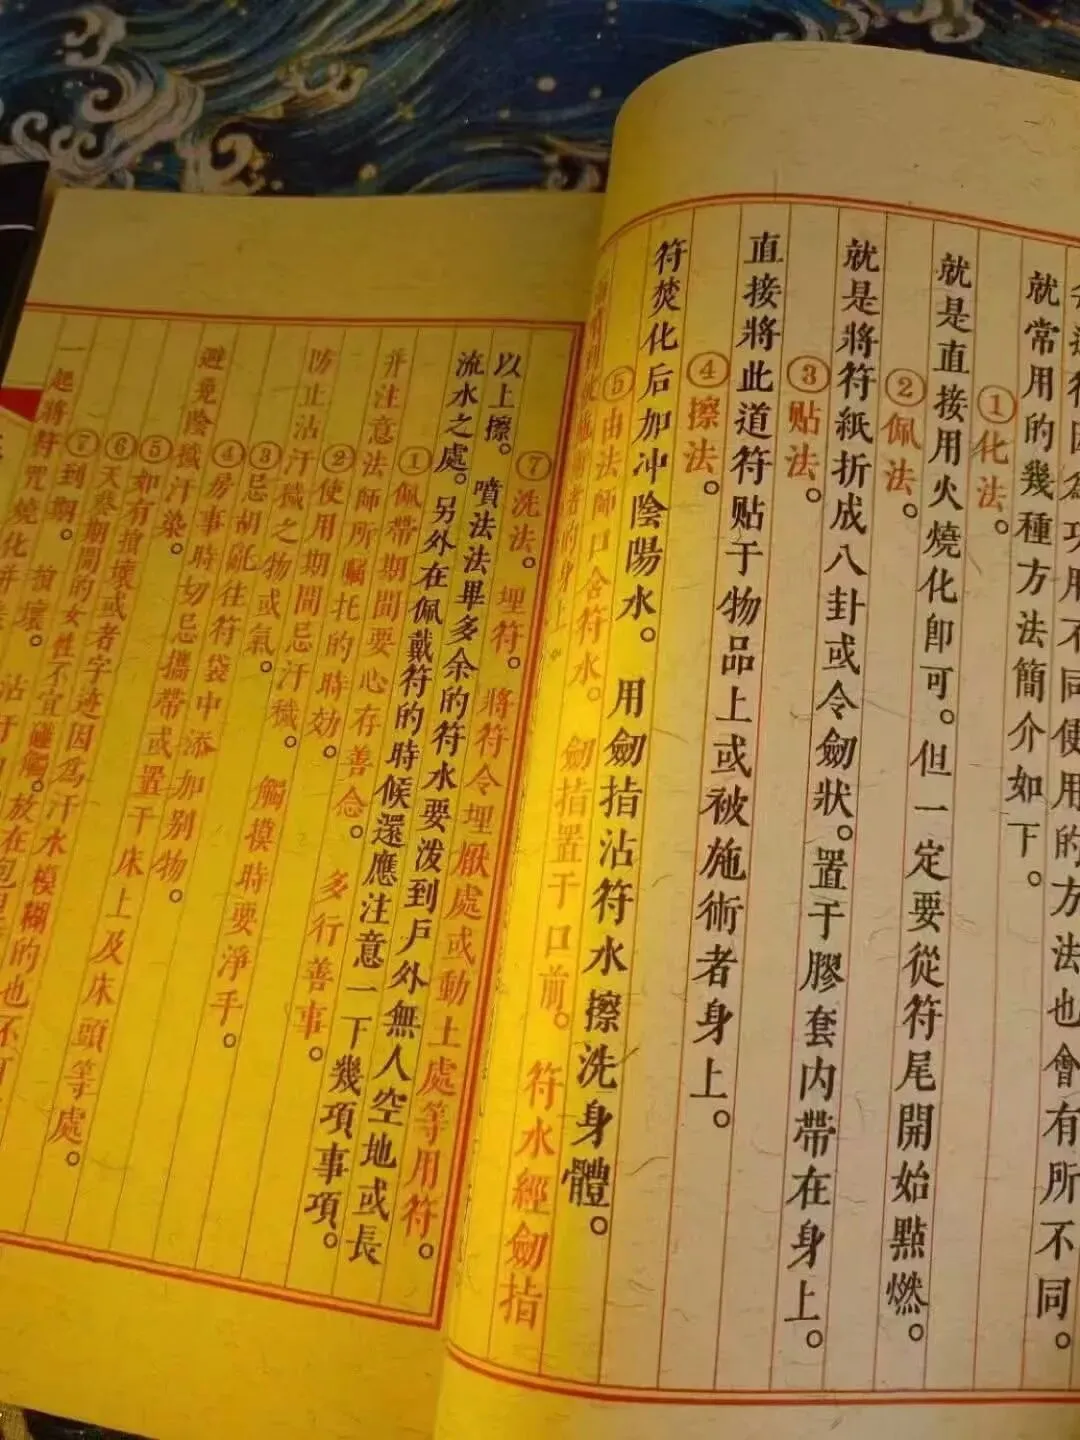 道符因為功用不同使用的方法也會有所不同。
就常用的幾種方法簡介如下。
①化法。
就是直接用火燒化即可。但一定要從符尾開始點燃。
②佩法。
就是將符紙折成八卦或令劒狀。置于膠套内帶在身上。
③贴法。
直接將此道符贴于物品上或被施術者身上。
④擦法。
符焚化后加冲陰陽水。用劒指沾符水擦洗身體。
⑤由法師口含符水。劒指置于口前。符水經劒指
施術者的身上。
⑦洗法。埋符。將符令埋厭處或動土處等用符。
以上擦。噴法法畢多余的符水要泼到戶外無人空地或長
流水之處。另外在佩戴符的時候還應注意一下幾項事項。
①佩帶期間要心存善念。多行善事。
并注意法師所囑托的時効。
②使用期間忌汗穢。觸摸時要淨手。
防止沾汗穢之物或氣。
③忌胡亂往符袋中添加别物。
④房事時切忌攜帶或置于床上及床頭等處。
避免陰穢汗染。
⑤如有損壞或者字迹因爲汗水模糊的也不
⑥天癸期間的女性不宜碰觸。放在包
⑦到期。損壞。沾于
一起將符咒燒化併